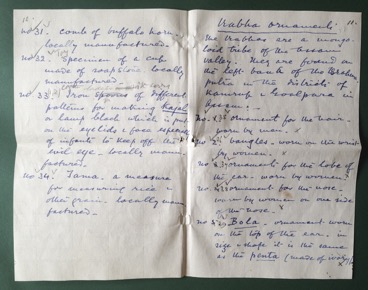 no 31. comb of buffalo horn
locally manufactured.
no 32. Specimen of a cup
made of soapstone locally
manufactured.
no 33. Iron spoons of different
patterns for making Kajal
or lamp black which is put
on the eyelids & face especially
of infants to keep off the
evil eye. locally manu-
factured.
no 34. Tama. a measure
for measuring rice &
other grain. locally manu
factured.
Rabha ornaments.
The Rabhas are a mongo-
loid tribe of the Assam
valley. They are found on
the left bank of the Brahma
putra in the districts of
Kamrup & Goalpara in
Assam.
ornament for the hair.
worn by men.
bangles. worn on the wrist
by women.
ornaments for the lobe of
the ear. worn by women.
ornament for the nose.
worn by women on one side
of the nose.
Bola. ornament worn
on the top of the ear. in
size & shape it is the same
as the penta (made of